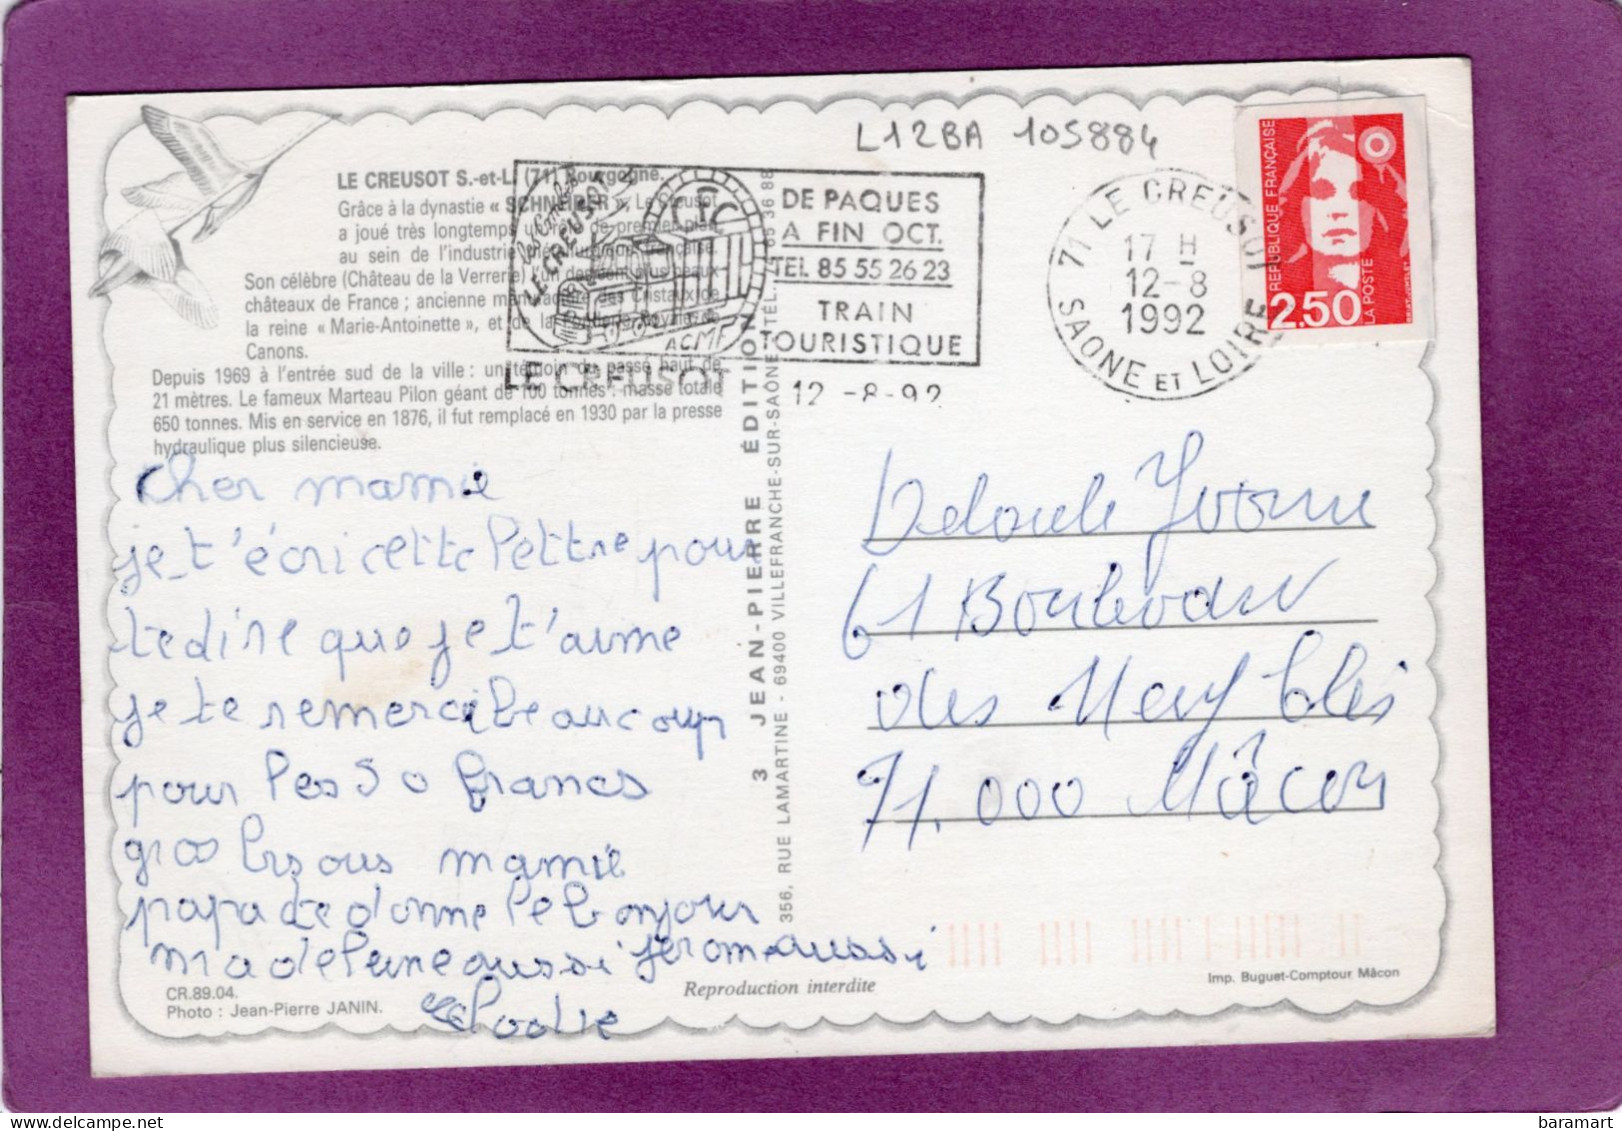 L12BA 105884
LE CREUSOT S.-et-L. (71) Bourgogne.
Grâce à la dynastie « SCHNEIDER », Le Creusot
a joué très longtemps un rôle de premier plan
au sein de l'industrie métallurgique française.
Son célèbre (Château de la Verrerie) l'un des dix plus beaux
châteaux de France ; ancienne manufacture des Cristaux de
la reine « Marie-Antoinette », et de la Fonderie Royale de
Canons.
Depuis 1969 à l'entrée sud de la ville : un témoin du passé haut de
21 mètres. Le fameux Marteau Pilon géant de 100 tonnes : masse totale
650 tonnes. Mis en service en 1876, il fut remplacé en 1930 par la presse
hydraulique plus silencieuse.
CFC
ACMF
DE PAQUES
A FIN OCT.
TEL 85 55 26 23
TRAIN
TOURISTIQUE
LE CREUSOT
12 -8-92
71 LE CREUSOT
17 H
12-8
1992
SAONE ET LOIRE
REPUBLIQUE FRANÇAISE
2.50
LA POSTE
cher mamie
je t'écri cette lettre pour
te dire que je t'aime
je te remerci beaucoup
pour les 50 francs
gros bisous mamie
papa te donne le bonjour
madeleine aussi jerome aussi
Elodie
3 JEAN-PIERRE ÉDITION
356, RUE LAMARTINE - 69400 VILLEFRANCHE-SUR-SAÔNE
61 Boulevard
des
71.000 Mâcon
CR.89.04.
Photo : Jean-Pierre JANIN.
Reproduction interdite
Imp. Buguet-Comptour Mâcon
baramart